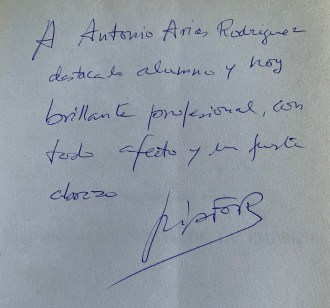 A Antonio Arias Rodriguez
destacado alumno y hoy
brillante profesional, con
todo afecto y un fuerte
abrazo